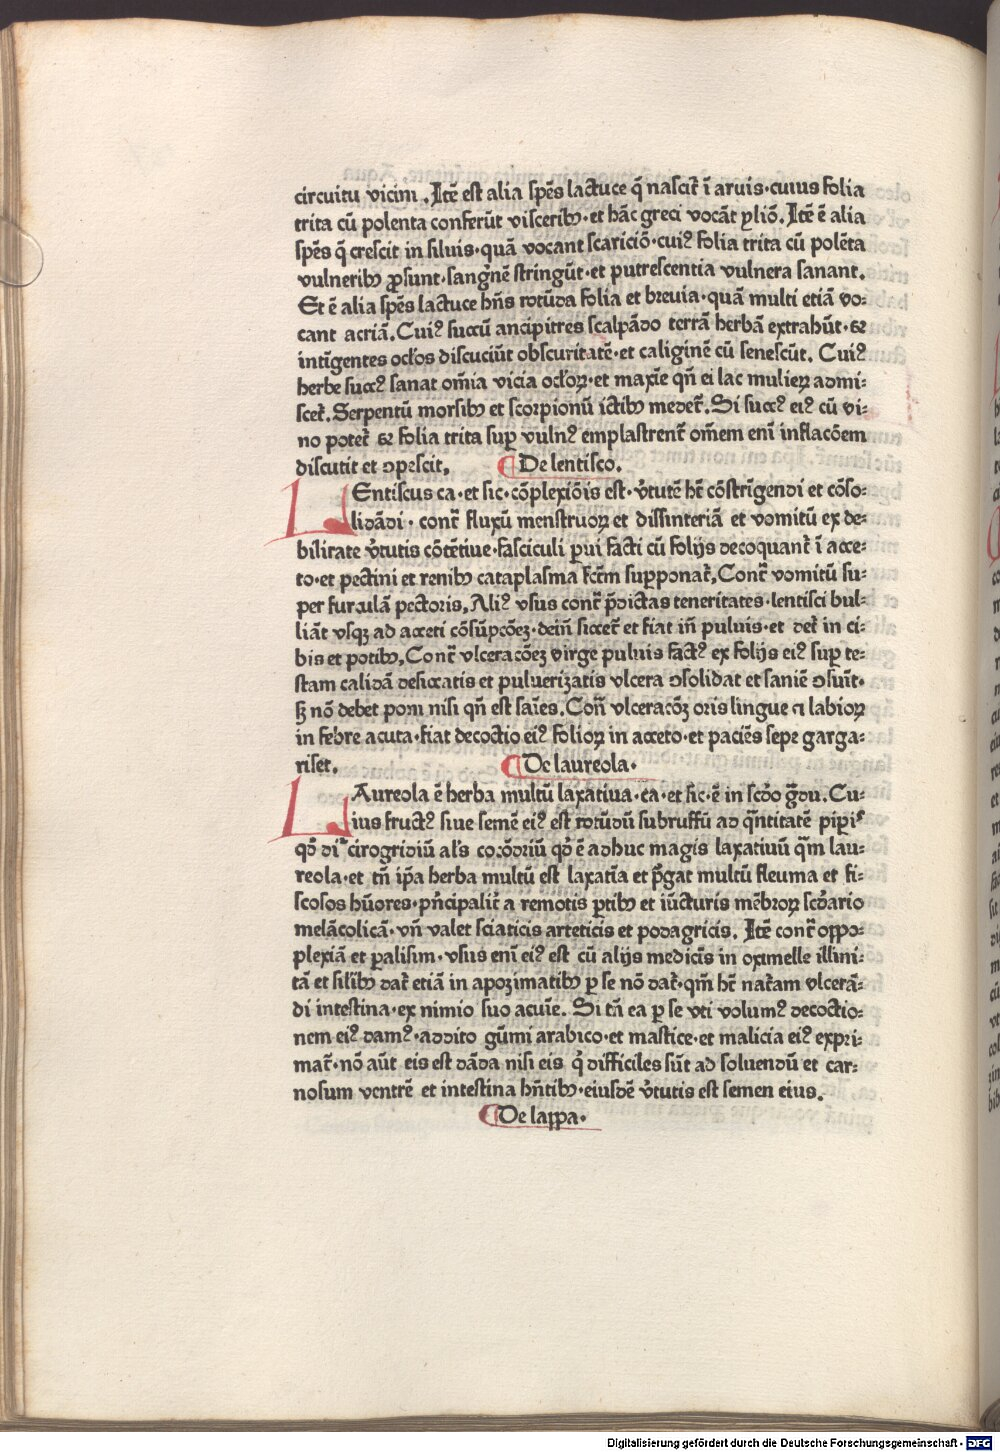 circuitu vicini . Itē est alia spēs lactuce q̄ nascit̄ ī aruis·cuius folia
trita cū polenta conferūt visceribꝫ·et hāc greci vocāt ꝑliō. Itē ē alia
spēs q̄ crescit in siluis·quā vocant scariciō·cuiꝰ folia trita cū polēta
vulneribꝫ ꝓsunt·sanḡnē stringūt·et putrescentia vulnera sanant.
Et ē alia spēs lactuce hn̄s rotūda folia et breuia·quā multi etiā vo-
cant acriā. Cuiꝰ succū ancipitres scalpādo terrā herbā extrahūt·⁊
intīgentes oc̄los discuciūt obscuritatē·et caliginē cū senescūt. Cuiꝰ
herbe succꝰ sanat om̄ia vicia oc̄loꝝ·et maxīe qn̄ ei lac mulieꝝ admi-
scet̄. Serpentū morsibꝫ et scorpionū ictibꝫ medet̄. Si succꝰ eiꝰ cū vi-
no potet̄ ⁊ folia trita suꝑ vulnꝰ emplastrent̄ om̄em enī inflac̄oem
discutit et ꝯpescit. ¶De lentisco.
LEntiscus ca·et sic·cōplexiōis est·v̄tutē hꝫ cōstrīgendi et cōso-
lidādi· cont̄ fluxū menstruoꝝ et dissinteriā et vomitū ex de-
bilitate v̄tutis cōtētiue·fasciculi ꝑui facti cū folijs decoquant̄ ī acce-
to·et pectini et renibꝫ cataplasma fc̄tm̄ supponat̄. Cont̄ vomitū su-
per furculā pectoris. Aliꝰ vsus cont̄ p̄dictas teneritates·lentisci bul-
liāt vsqꝫ ad acceti cōsūpcōeꝫ·dein̄ siccet̄ et fiat in̄ puluis·et det̄ in ci-
bis et potibꝫ. Cont̄ vlceracōeꝫ virge puluis factꝰ ex folijs eiꝰ suꝑ te-
stam calidā desiccatis et puluerizatis vlcera ꝯsolidat et saniē ꝯsuīt·
sꝫ nō debet poni nisi qn̄ est saīes. Con̄ vlceracōꝫ oris lingue ⁊ labioꝝ
in febre acuta·fiat decoctio eiꝰ folioꝝ in acceto·et paciēs sepe garga-
riset. ¶De laureola·
LAureola ē herba multū laxatiua·ca·et sic·ē in sc̄do g̊du. Cu-
ius fructꝰ siue semē eiꝰ est rotūdū subruffū ad q̄ntitatē piꝑis
qd̄ dr̄ cirogridiū al's cocōdriū qd̄ ē adhuc magis laxatiuū q̄m lau-
reola·et tn̄ ip̄a herba multū est laxatīa et p̄gat multū fleuma et fi-
scosos hūores·pn̄cipalit̄ a remotis ꝑtibꝫ et iūcturis mēbroꝝ sc̄dario
melācolicā·vn̄ valet sciaticis arteticis et podagricis. Itē cont̄ oppo-
plexiā et ꝑalisim·vsus enī eiꝰ est cū alijs medicīs in oximelle illini-
tā et silibꝫ dat̄ etiā in apozimatibꝫ ꝑ se nō dat̄·qm̄ hꝫ nat̄am vlcerā-
di intestina·ex nimio suo acuīe. Si tn̄ ea ꝑ se vti volumꝰ decoctio-
nem eiꝰ damꝰ·addito gūmi arabico·et mastice·et malicia eiꝰ expri-
mat̄·nō aūt eis est dāda nisi eis q̇ difficiles sūt ad soluendū et car-
nosum ventrē et intestina hn̄tibꝫ·eiusdē v̄tutis est semen eius.
¶De lappa·
Digitalisierung gefördert durch die Deutsche Forschungsgemeinschaft - DFG